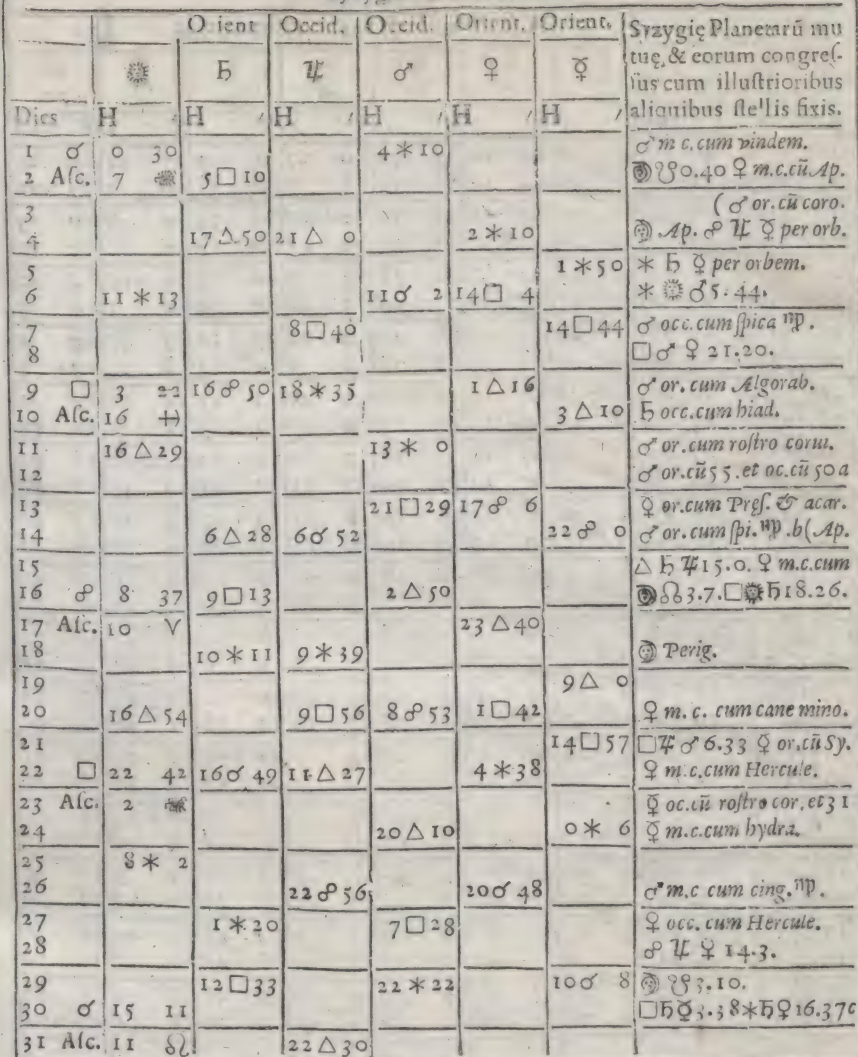 Orient Occid. Occid. Orient. Orient. Syzygię Planetarū mu
☉ ♄ ♃ ♂ ♀ ☿ tuę, & eorum congreſ-
ſus cum illuſtrioribus
Dies H / H / H / H / H / H / aliquibus ſtellis fixis.
1 ☌ 0 30 4 ⚹ 10 ♂ m c. cum vindem.
2 Aſc. 7 5 □ 10 ☋ 0.40 ♀ m.c.cū Ap.
3 ( ♂ or. cū coro.
4 17 △ 50 21 △ 0 2 ⚹ 10 Ap. ☍ ♃ ☿ per orb.
5 1 ⚹ 50 ⚹ ♄ ☿ per orbem.
6 11 ⚹ 13 11 ☌ 2 14 □ 4 ⚹ ☉ ♂ 5.44.
7 8 □ 40 14 □ 44 ♂ occ. cum ſpica ♍.
8 □ ♂ ♀ 21.20.
9 □ 3 22 16 ☍ 50 18 ⚹ 35 1 △ 16 ♂ or. cum Algorab.
10 Aſc. 16 3 △ 10 ♄ occ. cum hiad.
11 16 △ 29 13 ⚹ 0 ♂ or. cum roſtro corui.
12 ♂ or.cū 55. et oc.cū 50 a
13 21 □ 29 17 ☍ 6 ☿ or.cum Preſ. & acar.
14 6 △ 28 6 ☌ 52 22 ☍ 0 ♂ or. cum ſpi. ♍. b( Ap.
15 △ ♄ ♃ 15.0. ♀ m.c.cum
16 ☍ 8 37 9 □ 13 2 △ 50 ☊ 3.7. □ ☉ ♄ 18.26.
17 Aſc. 10 ♈ 23 △ 40
18 10 ⚹ 11 9 ⚹ 39 Perig.
19 9 △ 0
20 16 △ 54 9 □ 56 8 ☍ 53 1 □ 42 ♀ m. c. cum cane mino.
21 14 □ 57 □ ♃ ♂ 6.33 ☿ or.cū Sy.
22 □ 22 42 16 ☌ 49 11 △ 27 4 ⚹ 38 ♀ m.c.cum Hercule.
23 Aſc. 2 ☿ oc.cū roſtro cor, et 31
24 20 △ 10 0 ⚹ 6 ☿ m.c.cum hydra.
25 8 ⚹ 2
26 22 ☍ 56 20 ☌ 48 ♂ m.c cum cing. ♍.
27 1 ⚹ 20 7 □ 28 ♀ occ. cum Hercule.
28 ☍ ♃ ♀ 14.3.
29 12 □ 33 22 ⚹ 22 10 ☌ 8 ☋ 3.10.
30 ☌ 15 11 □ ♄ ☿ 3.38 ⚹ ♄ ♀ 16.37 c
31 Aſc. 11 ♌ 22 △ 30